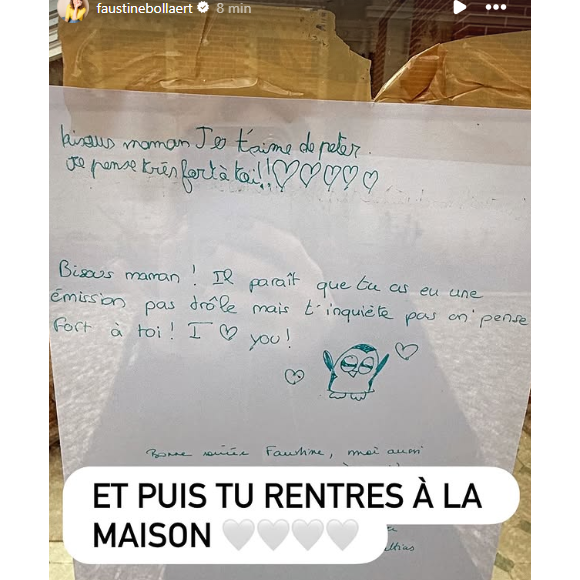 faustinebollaert 8 min
bisous maman Je t'aime de peter.
Je pense très fort à toi!!♡♡♡♡♡
Bisous maman ! Il paraît que tu as eu une
émission pas drôle mais t'inquiète pas on pense
fort à toi ! I ♡ you !
Bonne soirée Faustine, moi aussi
ET PUIS TU RENTRES À LA
MAISON 🤍🤍🤍🤍